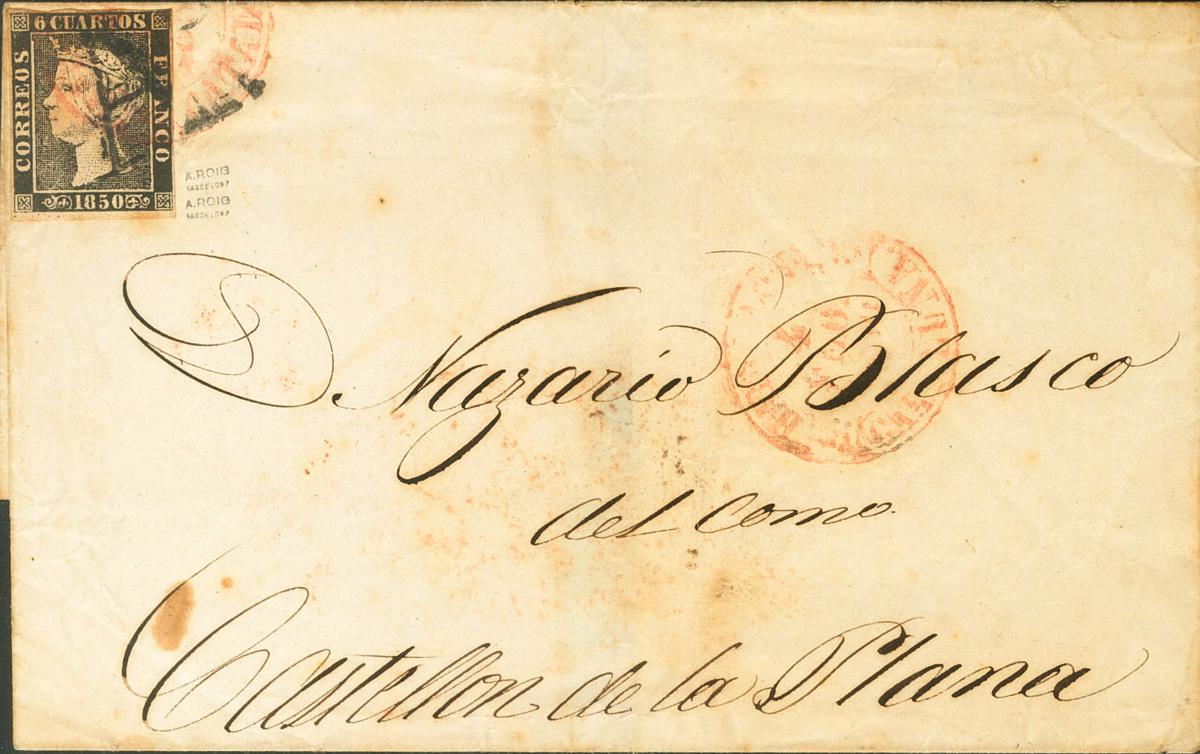 6 CUARTOS
CORREOS
FRANCO
1850
A.ROIG
BARCELONA
A.ROIG
BARCELONA
D. Nazario Blasco
del Como.
Castellon de la Plana